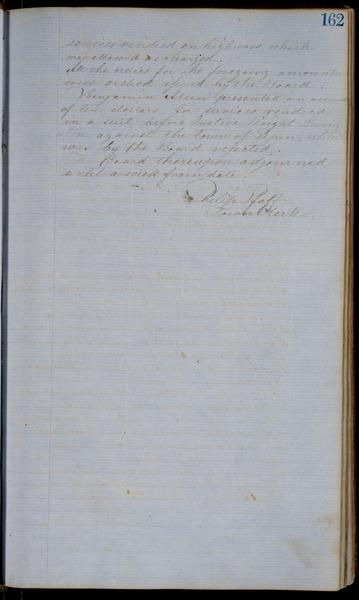 162
services rendered on highways which
was allowed as charged.
All the orders for the foregoing amounts
were ordered by the Board.
Benjamin presented an account
of ten dollars for services rendered
in a suit before Justice Dwight
against the town of which
was by the Board rejected.
The Board thereupon adjourned
until a week from date.
Philip Pfaff
Town Clerk